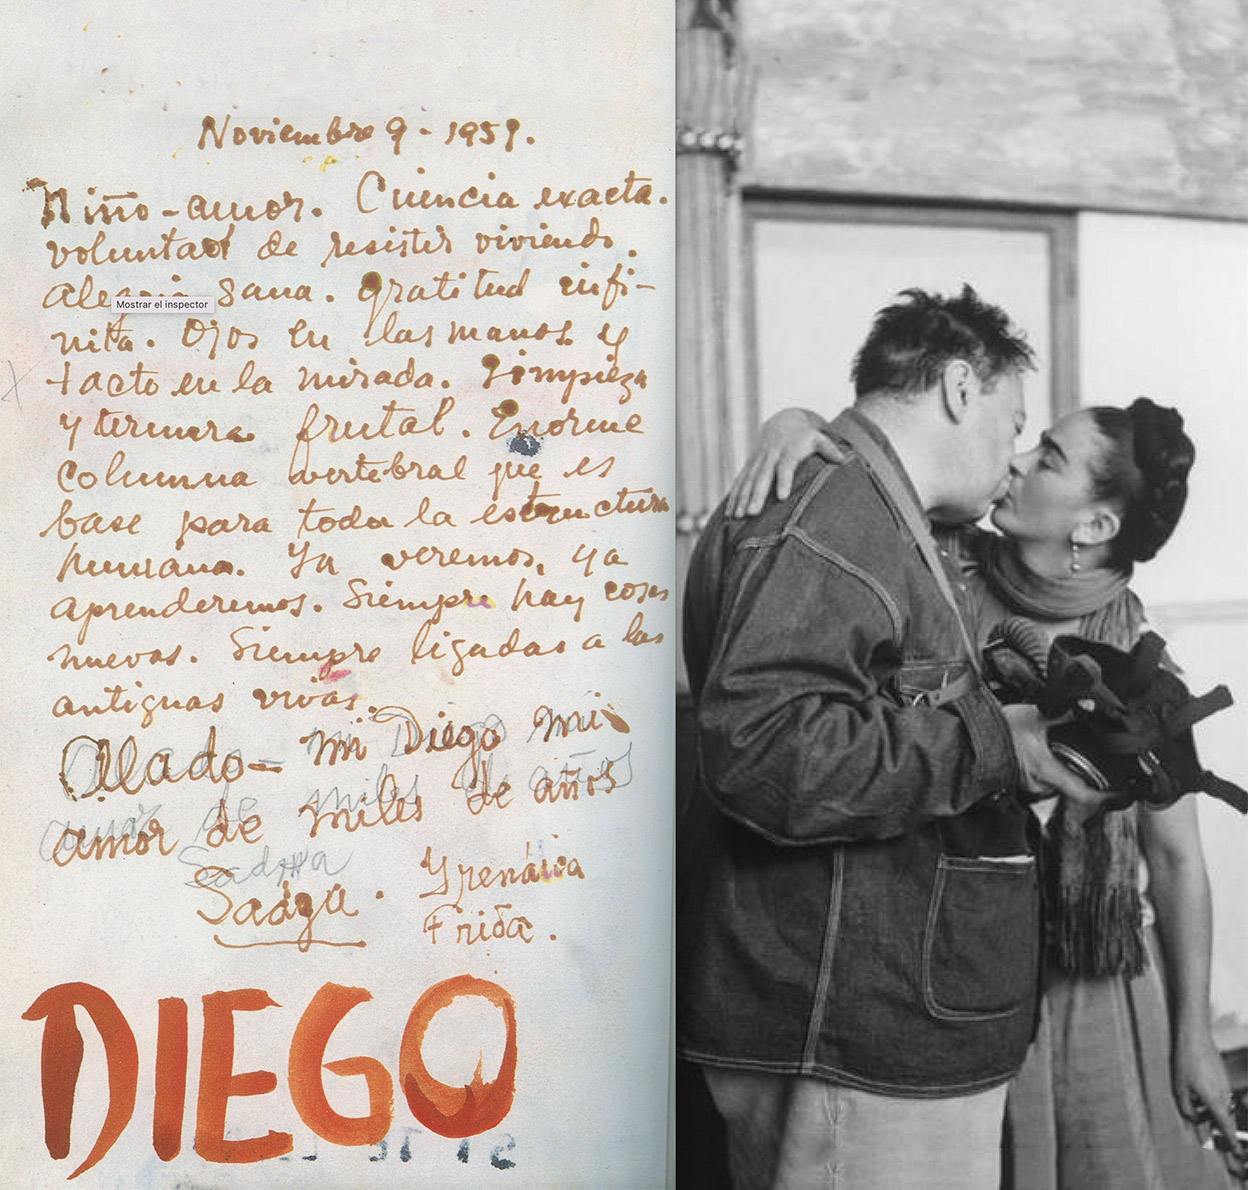 Noviembre 9 - 1951.
Niño-amor. Ciencia exacta.
voluntad de resistir viviendo.
alegria sana. gratitud infi-
Mostrar el inspector
nita. Ojos en las manos y
tacto en la mirada. Limpieza
y ternura frutal. Enorme
columna vertebral que es
base para toda la estructura
humana. Ya veremos, ya
aprenderemos. Siempre hay cosas
nuevas. Siempre ligadas a las
antiguas vivas.
Alado- mi Diego mi
amor de miles de años
Sadga. Yrenáica
Frida.
DIEGO